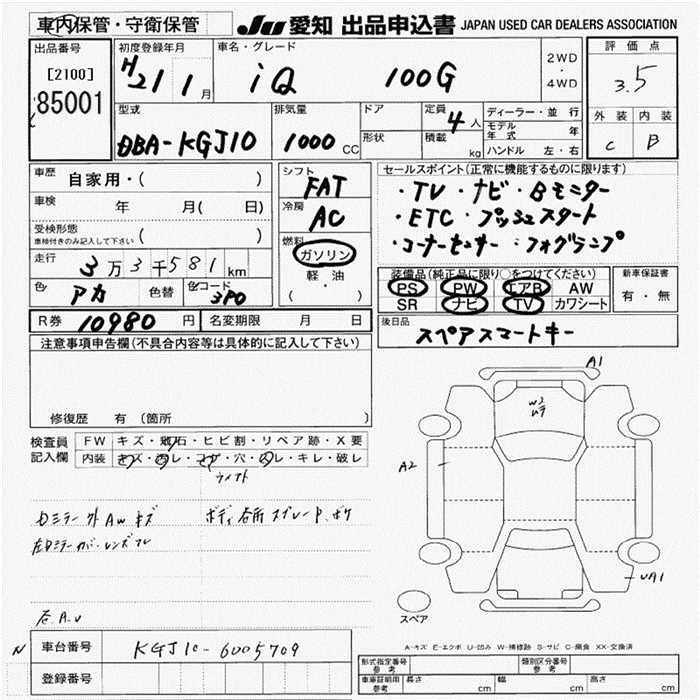 車内保管・守衛保管
JU 愛知 出品申込書 JAPAN USED CAR DEALERS ASSOCIATION
出品番号 初度登録年月 車名・グレード 2WD・4WD 評価点
[2100] H21 1月 iQ 100G 3.5
85001
型式 排気量 ドア 定員 4人 ディーラー・並行 外装 内装
DBA-KGJ10 1000CC 形状 積載 kg モデル年式 年 C B
ハンドル 左・右
車歴 自家用・( ) シフト FAT セールスポイント(正常に機能するものに限ります)
車検 年 月( 日) 冷房 AC ・TV・ナビ・Bモニター
・ETC・プッシュスタート
受検形態 ( ) 燃料 ・コーナーセンサー・フォグランプ
車検付きのみ記入して下さい
走行 3万3千581km ガソリン 装備品(純正品に限り○をつけてください) 新車保証書
軽油 PS PW エアB AW 有・無
色 アカ 色替 色コード 3P0 ( ) SR ナビ TV カワシート
R券 10980円 名変期限 月 日 後日品 スペアスマートキー
注意事項申告欄(不具合内容等は具体的に記入して下さい)
修復歴 有(箇所 )
検査員記入欄 FW キズ・飛石・ヒビ割・リペア跡・X要
内装 キズ・汚レ・コゲ・穴・スレ・キレ・破レ
A1
W2
A2
UA1
スペア
右A.U
A-キズ E-エクボ U-凹み W-補修跡 S-サビ C-腐食 XX-交換済
N 車台番号 KGJ10-6005709
登録番号
型式指定番号 参考 類別区分番号 参考
車庫証明用 参考 長さ cm 幅 cm 高さ cm